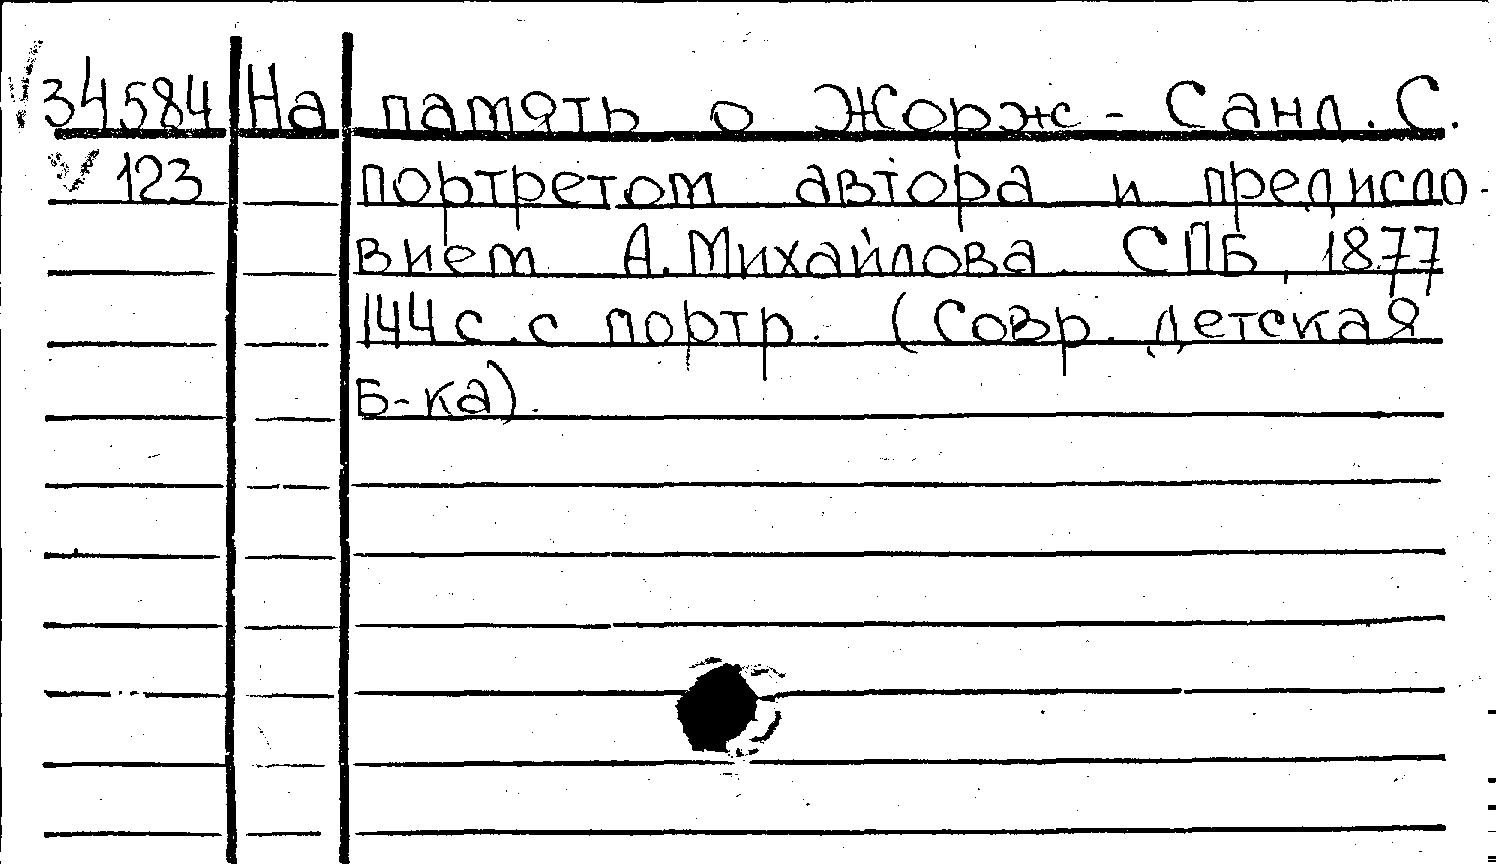 34584 На память о Жорж-Санд. С.
123 портретом автора и предисло-
вием А. Михайлова. СПБ, 1877
144 с. с портр. (Совр. детская
Б-ка).